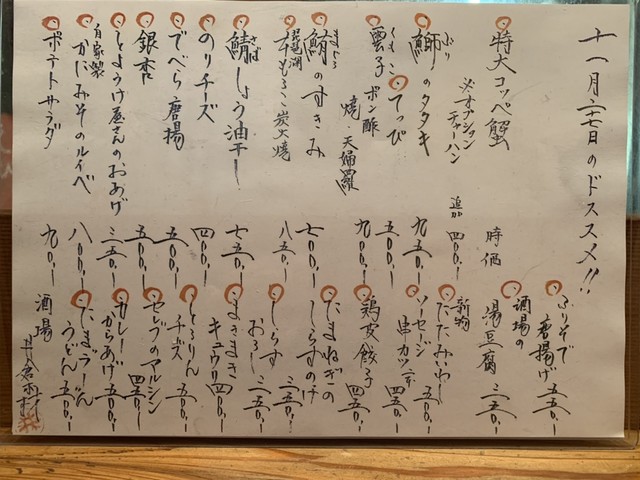 十一月二十七日のドスススメ!!
特大コッペ蟹 時価
※オプション チャーハン 追加 四〇〇、ー
鰤のタタキ 九五〇、ー
ぶり
てっぴ 五〇〇、ー
雲子 ポン酢 焼・天婦羅 九〇〇、ー
くもこ
鮪のすきみ 七〇〇、ー
まぐろ
琵琶湖 本もろこ炭火焼 八五〇、ー
鯖しょう油干し 七五〇、ー
さば
のりチーズ 四〇〇、ー
でべら唐揚 五〇〇、ー
銀杏 五〇〇、ー
とようけ屋さんのおあげ 三五〇、ー
自家製 かにみそのルイベ 八〇〇、ー
ポテトサラダ 九〇、ー
ぶりそで唐揚げ 五五〇、ー
酒場の湯豆腐 三五〇、ー
新物 たたみいわし 五〇〇、ー
ソーセージ串カツ 四五〇、ー
鶏皮餃子 四五〇、ー
たまねぎのしらすのけ 五〇〇、ー
しらすおろし 三五〇、ー
まきまきキュウリ 四〇〇、ー
とろりんチーズ 五〇〇、ー
セレブのマルシン 四五〇、ー
カレーからあげ 五〇〇、ー
たまごうーどんうどん 五〇〇、ー
酒場 井倉木材